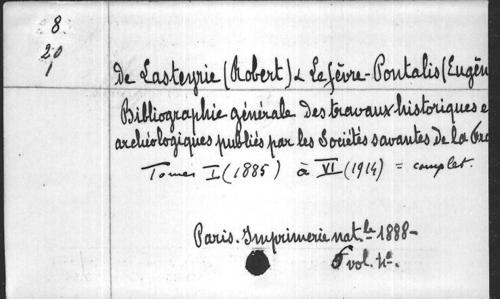 8.
20
1
de Lasteyrie (Robert) & Lefèvre-Pontalis (Eugèn
Bibliographie générale des travaux historiques e
archéologiques publiés par les Sociétés savantes de la Fra
Tomes I (1885) à VI (1914) = complet.
Paris. Imprimerie nat.le 1888-
vol. 4°.